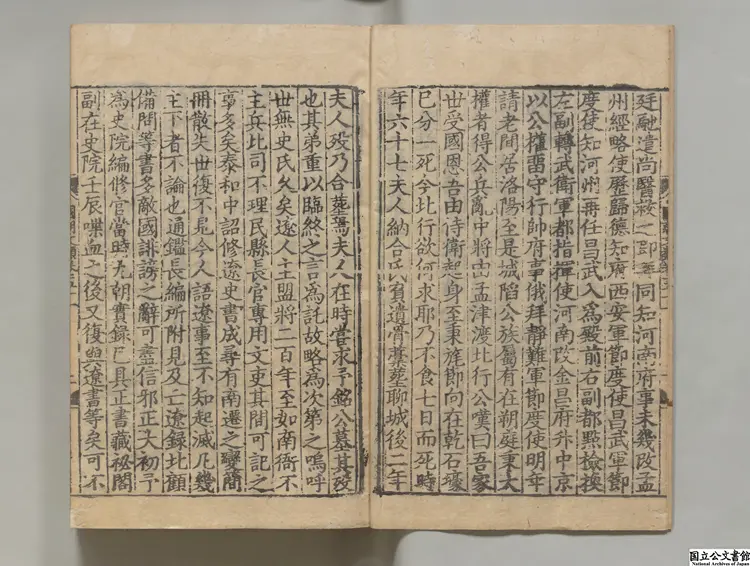 廷融遣尚醫救之即差同知河南府事未幾改孟
州經略使歷歸德知府西安軍節度使昌武軍節
度使知河州再任昌武入為殿前右副都點檢換
左副轉武衛軍都指揮使河南改金昌府升中京
以公權留守行帥府事俄拜靜難軍節度使明年
請老閑居洛陽至是城陷公族屬有在朔庭秉大
權者得公兵亂中將由孟津渡北行公嘆曰吾家
世受國恩吾由侍衛起身至秉旄節向在乾石壕
已分一死今北行欲何求耶乃不食七日而死時
年六十七夫人納合氏賓遺骨藁葬聊城後二年
夫人歿乃合葬焉夫人在時嘗求予銘公墓其歿
也其弟重以臨終之言為託故略為次第之嗚呼
世無史氏久矣遼人主盟將二百年至如南衙不
主兵北司不理民縣長官專用文吏其間可記之
事多矣泰和中詔修遼史書成尋有南遷之變簡
冊散失世復不見今人語遼事至不知起滅凡幾
主下者不論也通鑑長編所附見及亡遼錄北顧
備問等書多敵國誹謗之辭可盡信邪正大初予
為史院編修官當時九朝實錄已具正書藏祕閣
副在史院壬辰喋血之後又復與遼書等矣可不
国立公文書館
National Archives of Japan